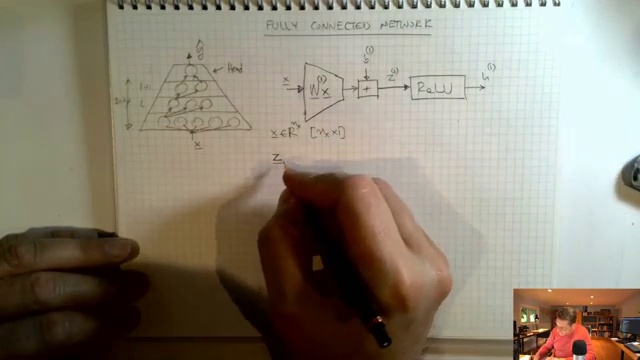 FULLY CONNECTED NETWORK
ŷ
Head
L+1
L
x
x
W⁽¹⁾x
b⁽¹⁾
+
z⁽¹⁾
ReLU
h⁽¹⁾
x ∈ ℝⁿˣ [nₓ×1]
z